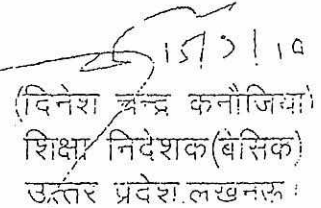 15/2/10
(दिनेश चन्द्र कनौजिया)
शिक्षा निदेशक(बेसिक)
उत्तर प्रदेश,लखनऊ।